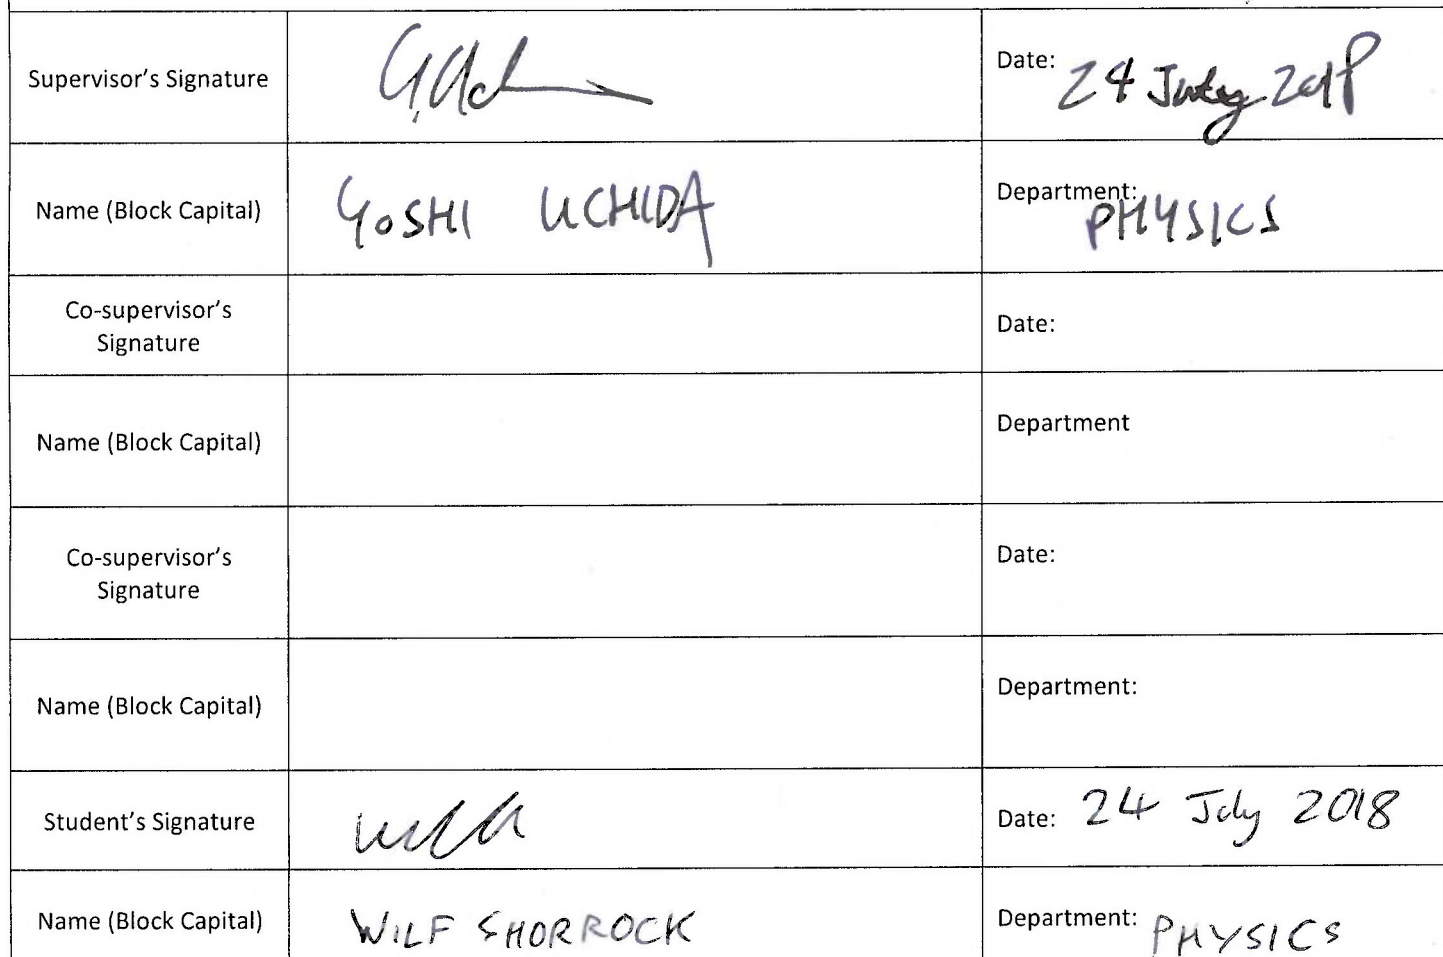 Supervisor's Signature
Date: 24 July 2018
Name (Block Capital)
YOSHI UCHIDA
Department: PHYSICS
Co-supervisor's
Signature
Date:
Name (Block Capital)
Department
Co-supervisor's
Signature
Date:
Name (Block Capital)
Department:
Student's Signature
Date: 24 July 2018
Name (Block Capital)
WILF SHORROCK
Department: PHYSICS